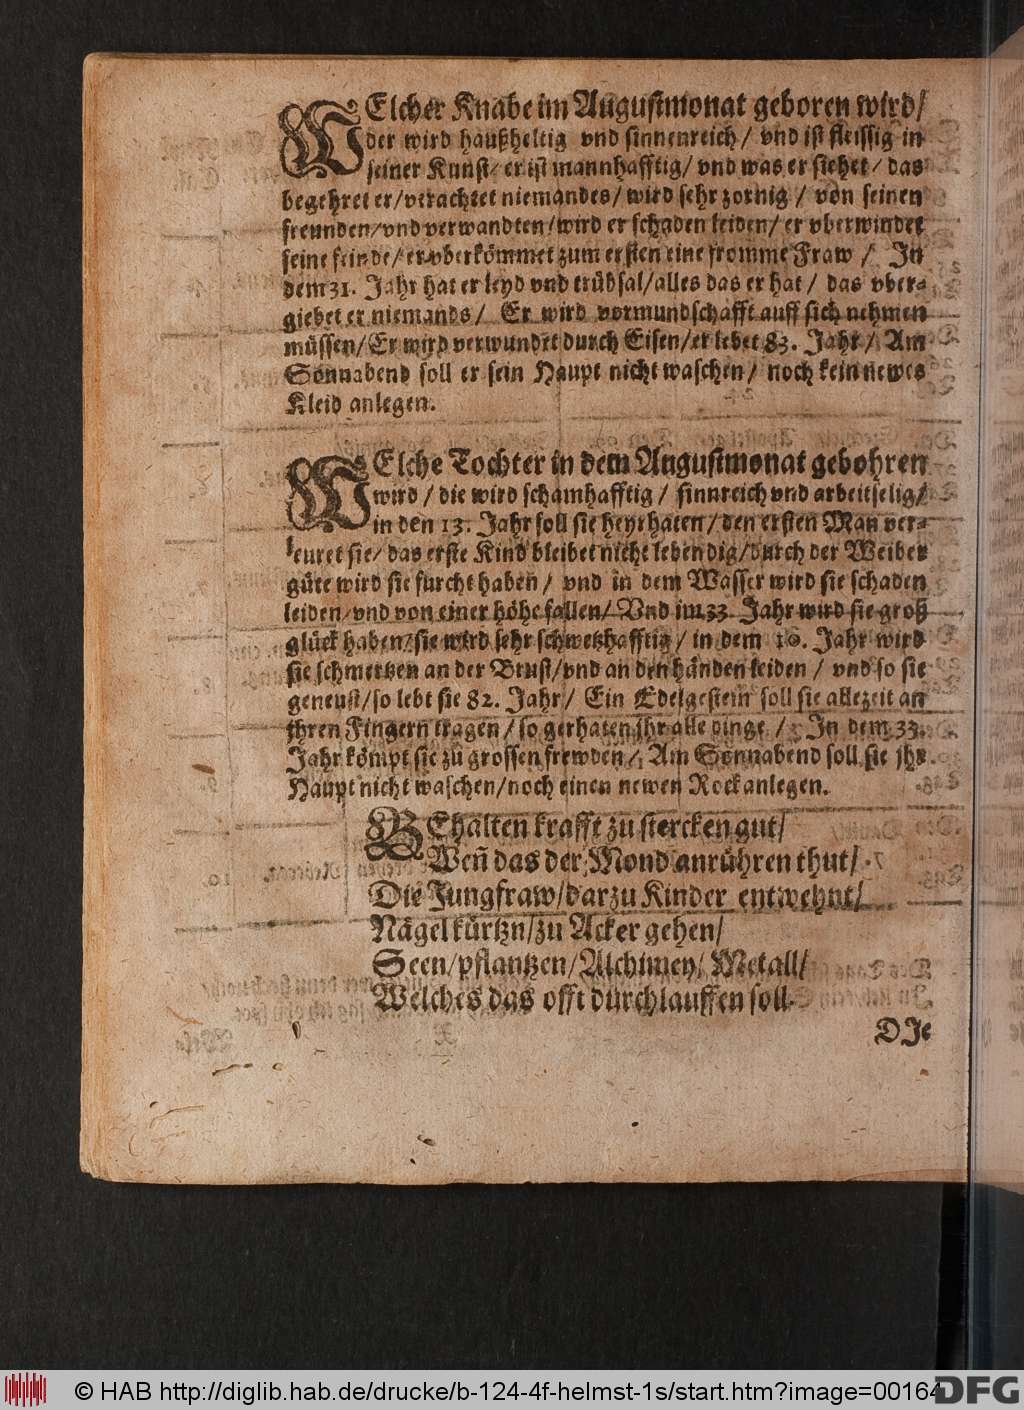 WElcher Knabe im Augustmonat geboren wird/
der wird haußheltig vnd sinnenreich/ vnd ist fleissig in
seiner Kunst/ er ist mannhafftig/ vnd was er siehet/ das
begehret er/verachtet niemandes/ wird sehr zornig/ von seinen
freunden/vnd verwandten/wird er schaden leiden/ er vberwindet
seine feinde/ er vberkömmet zum ersten eine fromme Fraw/ In
dem 31. Jahr hat er leyd vnd trübsal/alles das er hat/ das vber-
giebet er niemands/ Er wird vormundschafft auff sich nehmen
müssen/Er wird verwundet durch Eisen/er lebet 83. Jahr/ Am
Sonnabend soll er sein Haupt nicht waschen/ noch kein newes
Kleid anlegen.
WElche Tochter in dem Augustmonat gebohren
wird/ die wird schamhafftig/ sinnreich vnd arbeitselig/
in den 13. Jahr soll sie heyrhaten/den ersten Man ver-
leuret sie/ das erste Kind bleibet nicht lebendig/durch der Weiber
güte wird sie furcht haben/ vnd in dem Wasser wird sie schaden
leiden/vnd von einer höhe fallen/ Vnd im 33. Jahr wird sie groß
glück haben/sie wird sehr schwetzhafftig/ in dem 16. Jahr wird
sie schmertzen an der Brust/vnd an den händen leiden/ vnd so sie
geneust/so lebt sie 82. Jahr/ Ein Edelgestein soll sie allezeit an
jhren Fingern tragen/so gerhaten jhr alle dinge/ In dem 33.
Jahr kömpt sie zu grossen frewden/ Am Sonnabend soll sie jhr
Haupt nicht waschen/noch einen newen Rock anlegen.
BEhalten krafft zu stercken gut/
Weñ das der Mond anrühren thut/
Die Jungfraw/darzu Kinder entwehnt/
Nägel kürtzn/zu Acker gehen/
Seen/pflantzen/Alchimey/ Metall/
Welches das offt durchlauffen soll.
DIe
© HAB http://diglib.hab.de/drucke/b-124-4f-helmst-1s/start.htm?image=00164
DFG